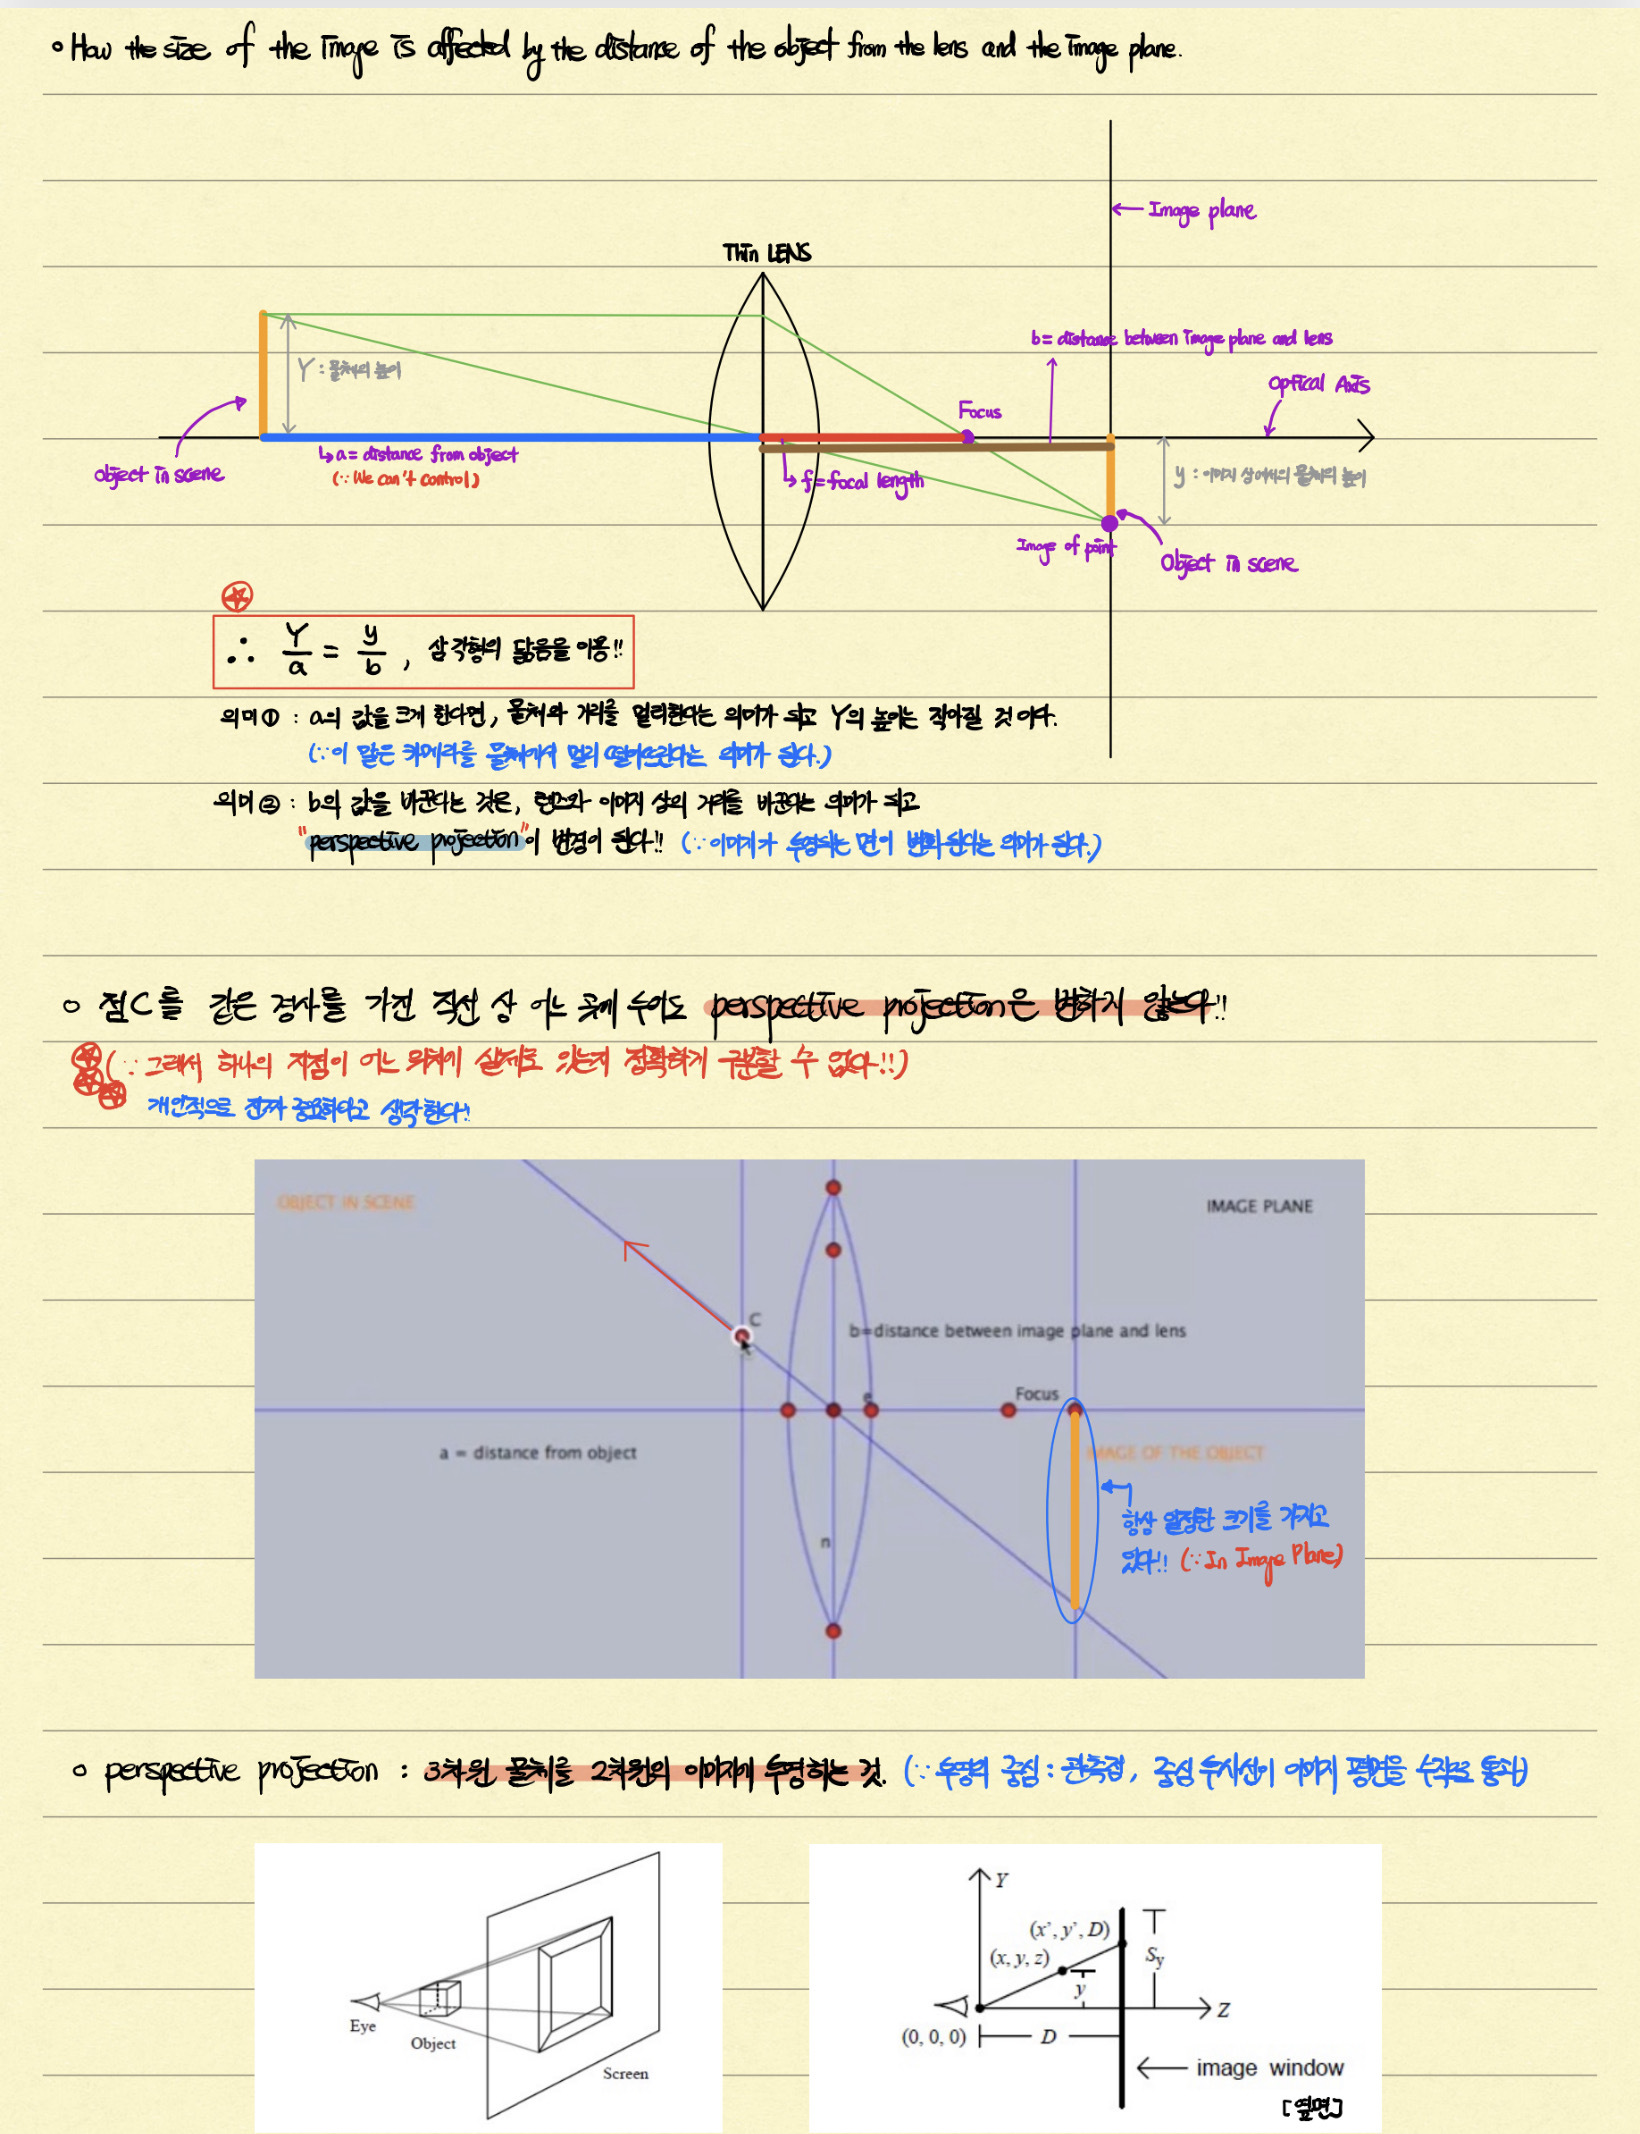 How the size of the image is affected by the distance of the object from the lens and the image plane.
Image plane
Thin LENS
b = distance between image plane and lens
Y : 물체의 높이
Optical Axis
Focus
object in scene
↳ a = distance from object
(∵ We can't control)
↳ f = focal length
y : 이미지 상에서의 물체의 높이
Image of point
Object in scene
∴ Y/a = y/b , 삼각형의 닮음을 이용!!
의미① : a의 값을 크게 한다면, 물체와 거리를 멀리한다는 의미가 되고 Y의 높이는 작아질 것이다.
(∵ 이 말은 카메라를 물체에서 멀리 떨어뜨린다는 의미가 된다.)
의미② : b의 값을 바꾼다는 것은, 렌즈와 이미지 상의 거리를 바꾼다는 의미가 되고
"perspective projection"이 변경이 된다!! (∵ 이미지가 투영되는 면이 변화된다는 의미가 된다.)
점C를 같은 경사를 가진 직선 상 어느 곳에 두어도 perspective projection은 변하지 않는다!!
(∵ 그래서 하나의 지점이 어느 위치에 실제로 있는지 정확하게 구분할 수 없다!!)
개인적으로 진짜 중요하다고 생각한다!!
OBJECT IN SCENE
IMAGE PLANE
C
b=distance between image plane and lens
e
Focus
a = distance from object
IMAGE OF THE OBJECT
항상 일정한 크기를 가지고
있다!! (∵ In Image Plane)
n
perspective projection : 3차원 물체를 2차원의 이미지에 투영하는 것. (∵ 투영의 중심 : 관측점, 중심 투사선이 이미지 평면을 수직으로 통과)
Eye
Object
Screen
Y
(x', y', D)
(x, y, z)
Sy
y
Z
(0, 0, 0)
D
image window
[옆면]